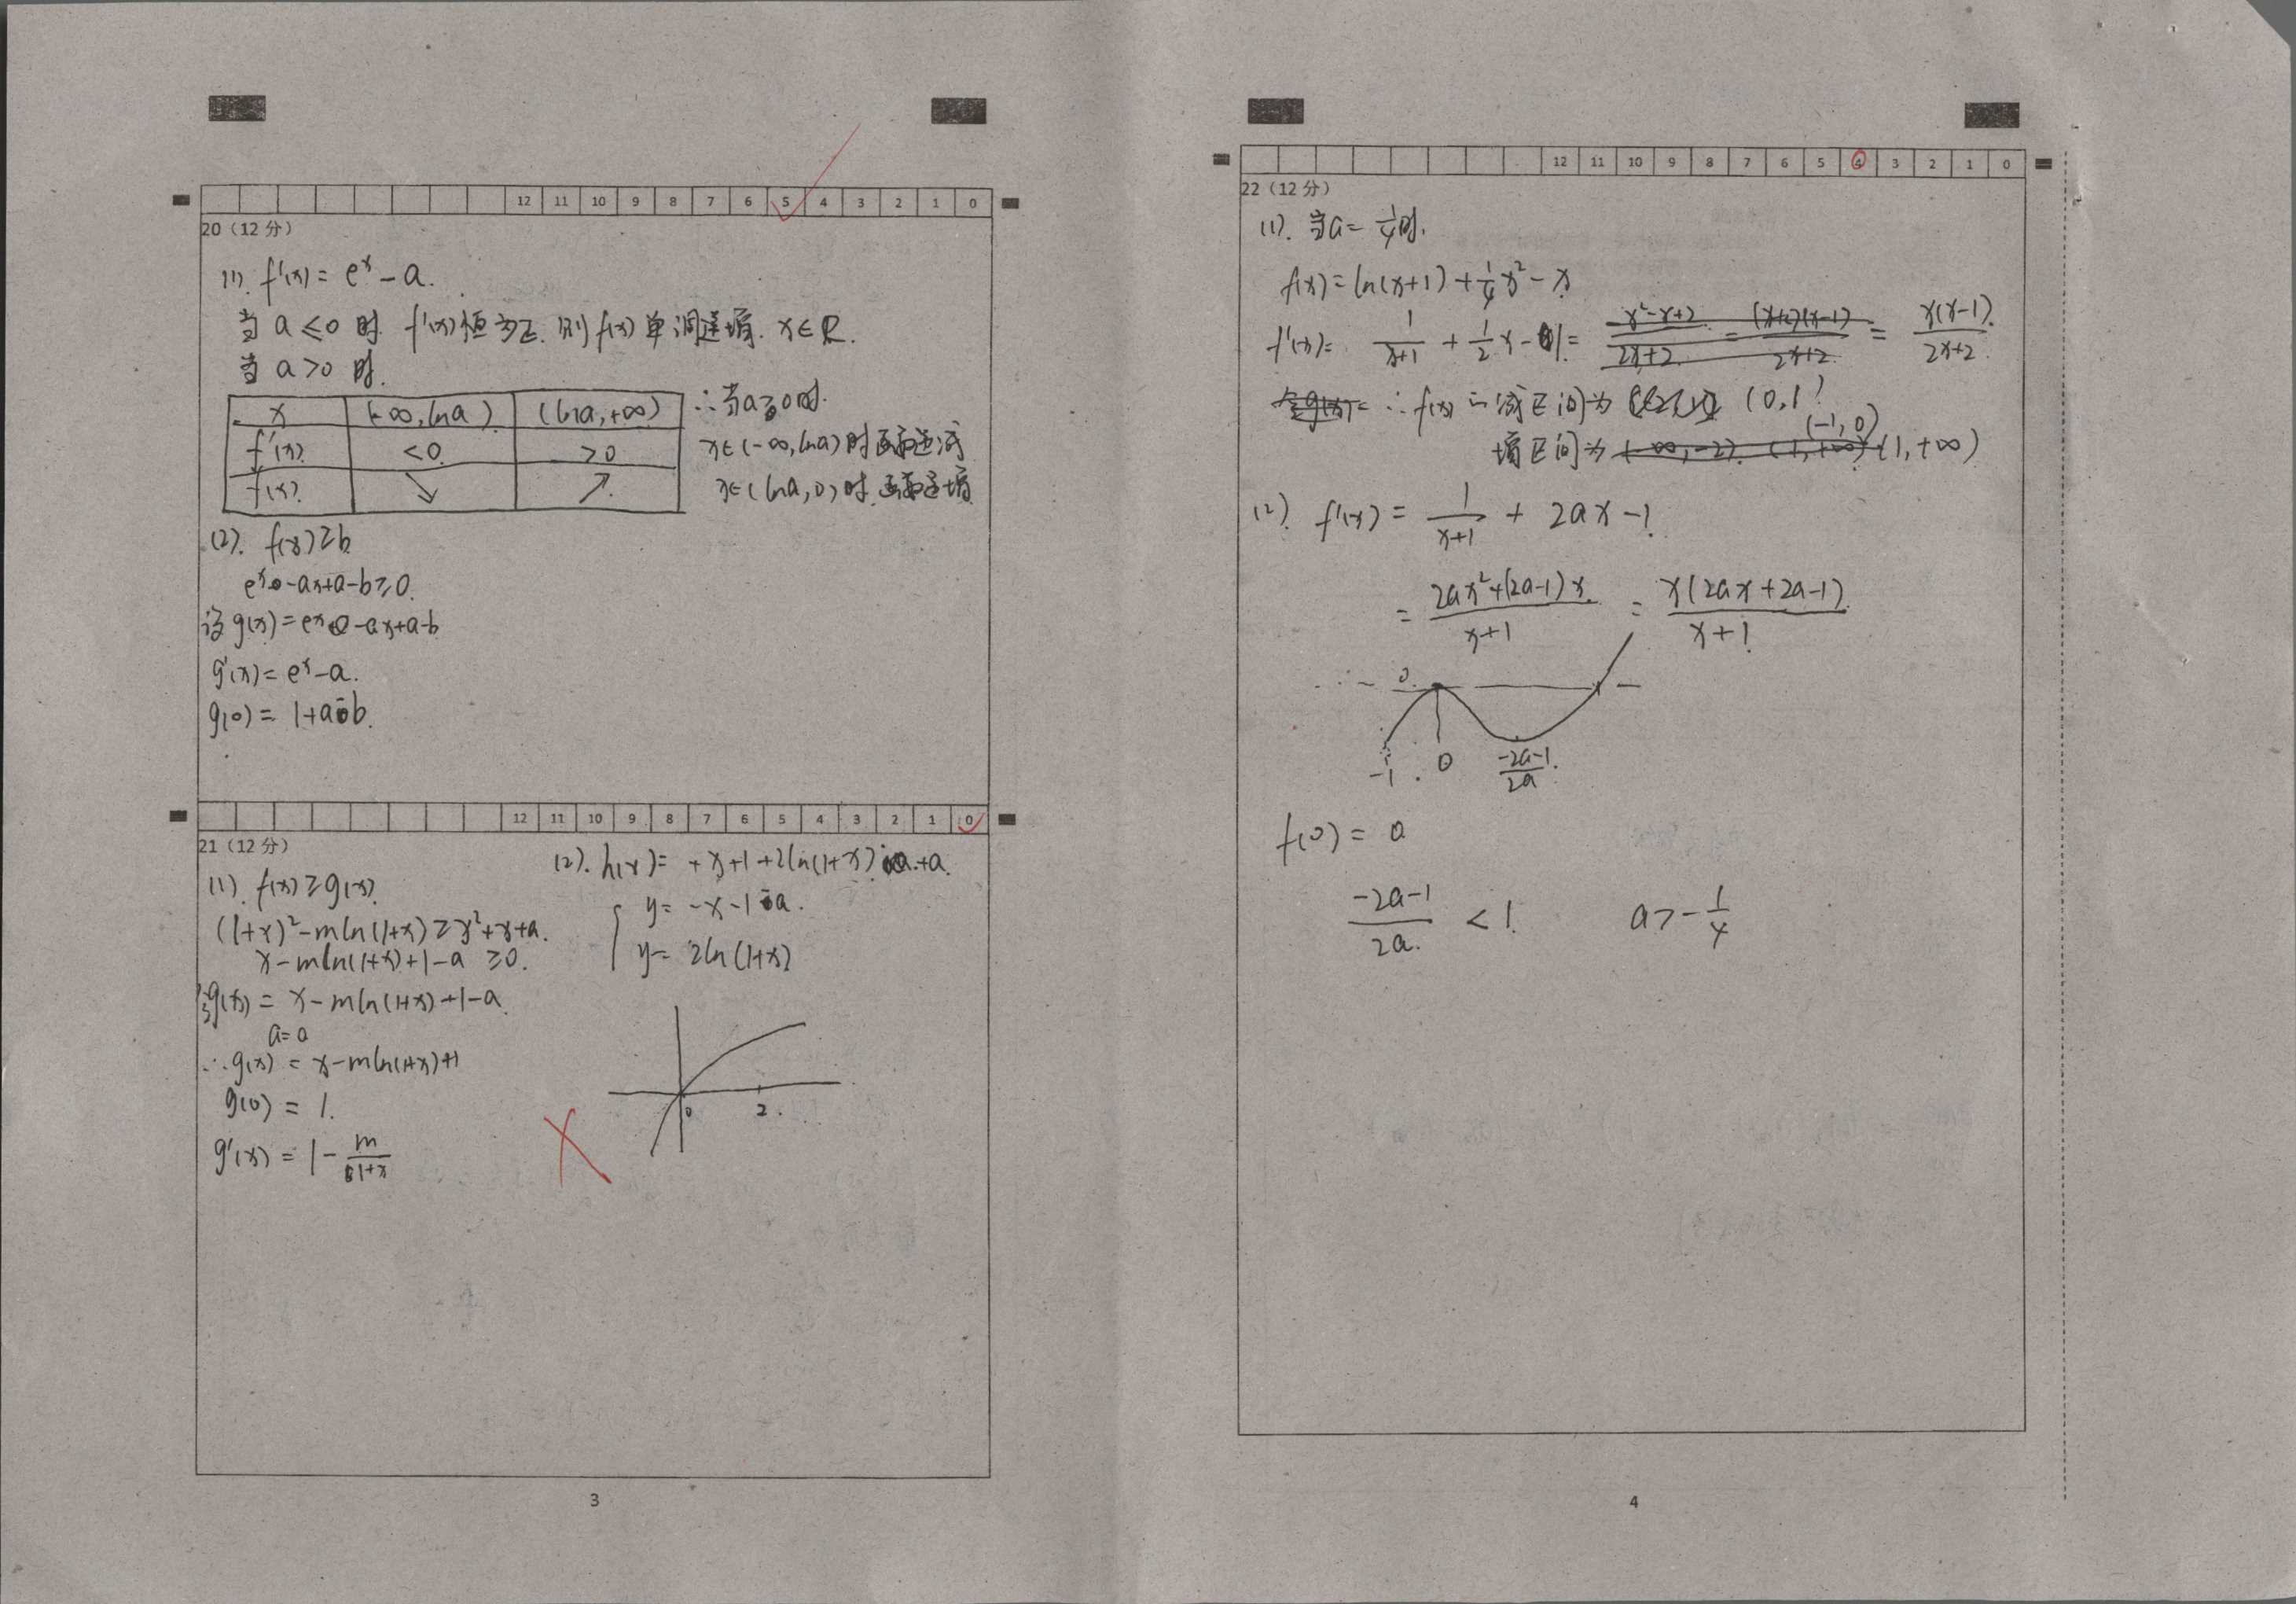 12 11 10 9 8 7 6 5 4 3 2 1 0
20（12 分）
(1). f'(x) = e^x - a.
当 a ≤ 0 时. f'(x)恒为正. 则 f(x) 单调递增. x∈R.
当 a > 0 时.
x (-∞, ln a) (ln a, +∞)
f'(x) <0 >0
f(x) ↘ ↗
∴当a≥0时.
x∈(-∞, ln a) 时 递减
x∈(ln a, 0) 时. 递增
(2). f(x) ≥ b
e^x - ax + a - b ≥ 0.
设 g(x) = e^x - ax + a - b
g'(x) = e^x - a.
g(0) = 1 + a - b.
12 11 10 9 8 7 6 5 4 3 2 1 0
21（12 分）
(1). f(x) ≥ g(x).
(1+x)² - m ln(1+x) ≥ x² + x + a.
x - m ln(1+x) + 1 - a ≥ 0.
g(x) = x - m ln(1+x) + 1 - a.
a = 0
∴ g(x) = x - m ln(1+x) + 1
g(0) = 1.
g'(x) = 1 - m/(1+x)
(2). h(x) = + x + 1 + 2ln(1+x) + a.
y = -x - 1 - a.
y = 2ln(1+x)
0 2.
3
12 11 10 9 8 7 6 5 4 3 2 1 0
22（12 分）
(1). 当a = 1/4时.
f(x) = ln(x+1) + 1/4 x² - x
f'(x) = 1/(x+1) + 1/2 x - 1 = (x²-x+2)/(2x+2) = (x+2)(x-1)/(2x+2) = x(x-1)/(2x+2).
令g(x) = ∴ f(x) 减区间为 (0,1)
(-1, 0)
增区间为 (-∞, -2). (1, +∞) (1, +∞)
(2). f'(x) = 1/(x+1) + 2ax - 1.
= (2ax² + (2a-1)x)/(x+1) = x(2ax + 2a - 1)/(x+1)
0
-1 0 (-2a-1)/2a
f(0) = 0
(-2a-1)/2a < 1. a > -1/4
4